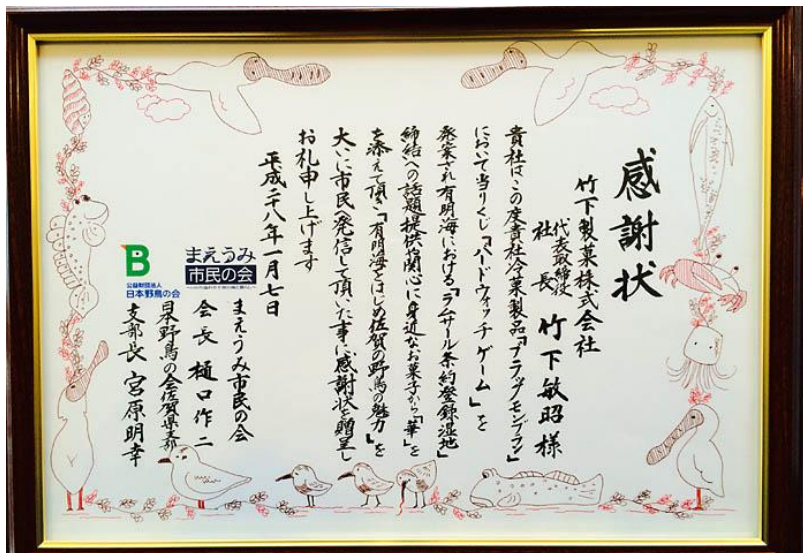 感謝状
竹下製菓株式会社
代表取締役
社長 竹下敏昭様
貴社はこの度貴社冷菓製品「ブラックモンブラン」
において当りくじ「バードウォッチゲーム」を
発案され有明海における「ラムサール条約登録湿地」
締結への話題提供や関心に身近なお菓子から「華」を
を添えて頂き「有明海をはじめ佐賀の野鳥の魅力」を
大いに市民へ発信して頂いた事に感謝状を贈呈し
お礼申し上げます
平成二八年一月七日
まえうみ
市民の会
まえうみ市民の会
会長 樋口作二
B
公益財団法人
日本野鳥の会
日本野鳥の会佐賀県支部
支部長 宮原明幸